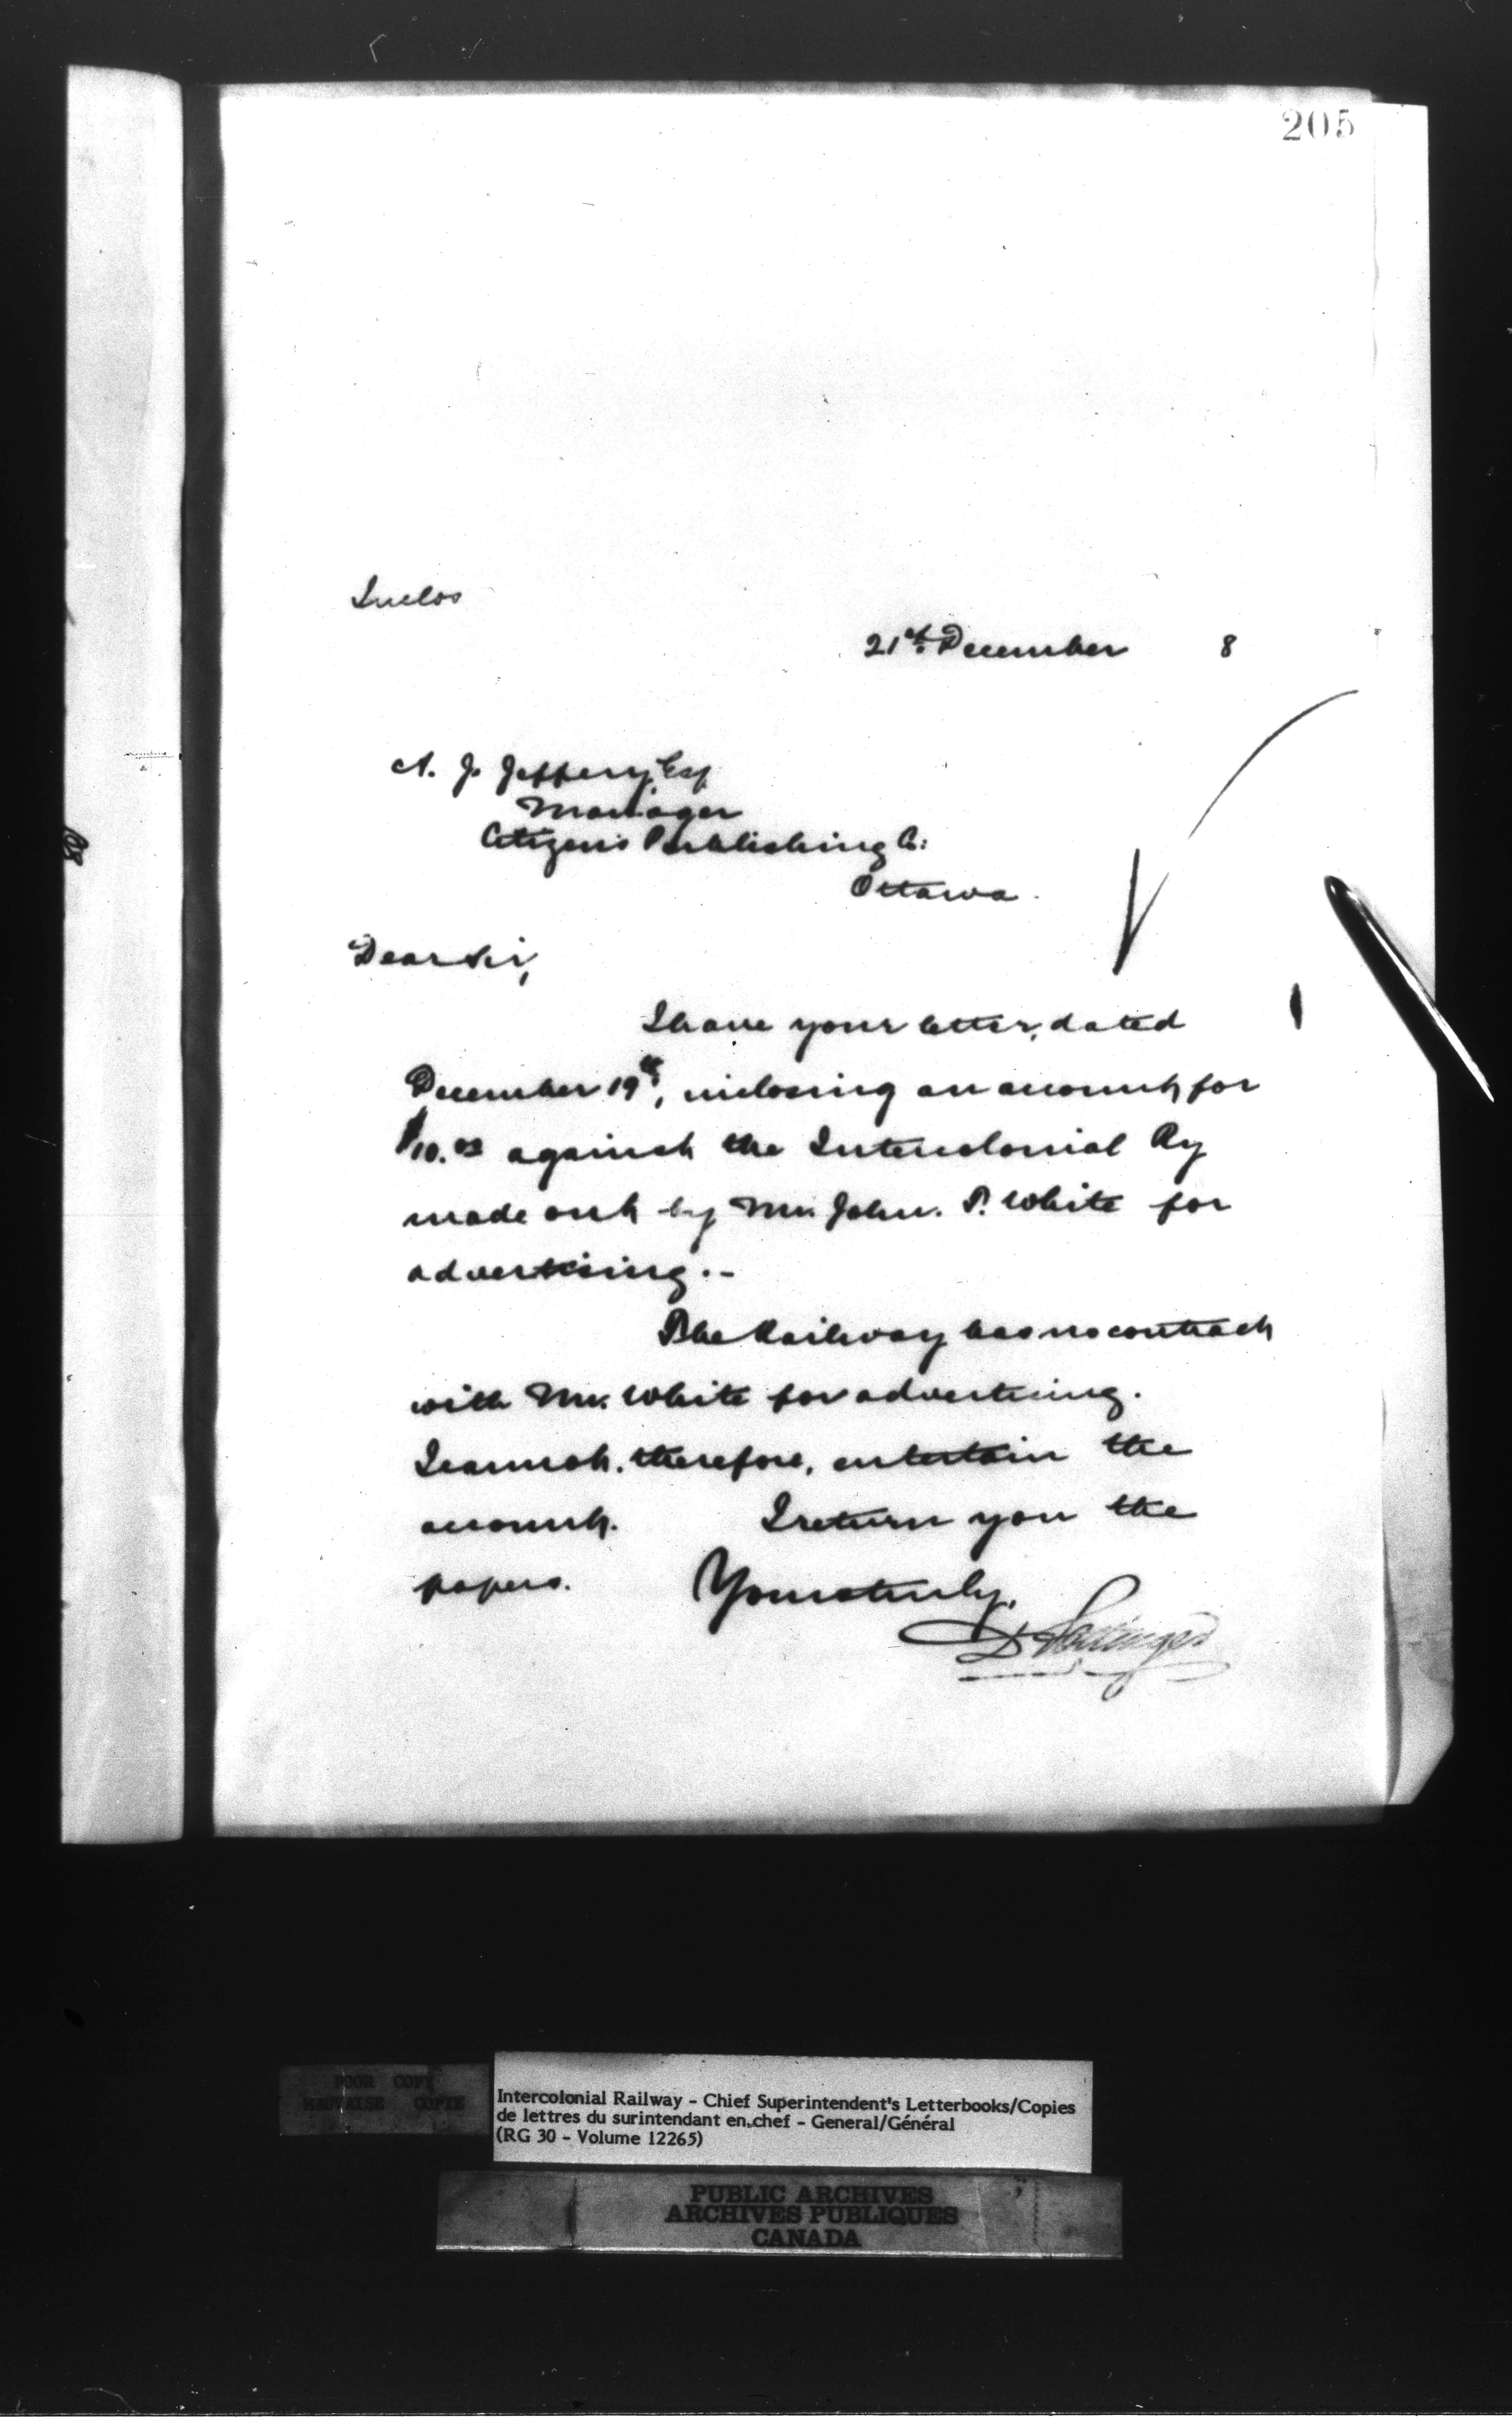 205
Inclos
21st. December 8
A. J. Jeffery, Esq
Manager
Citizens Publishing Co:
Ottawa.
Dear Sir,
I have your letter, dated
December 19th, inclosing an account for
$10.00 against the Intercolonial Ry
made out by Mr. John. P. White for
advertising.-
The Railway has no contract
with Mr. White for advertising.
I cannot, therefore, entertain the
account. I return you the
papers. Yours truly,
D Pottinger
POOR COPY
MAUVAISE COPIE
Intercolonial Railway - Chief Superintendent's Letterbooks/Copies
de lettres du surintendant en chef - General/Général
(RG 30 - Volume 12265)
PUBLIC ARCHIVES
ARCHIVES PUBLIQUES
CANADA